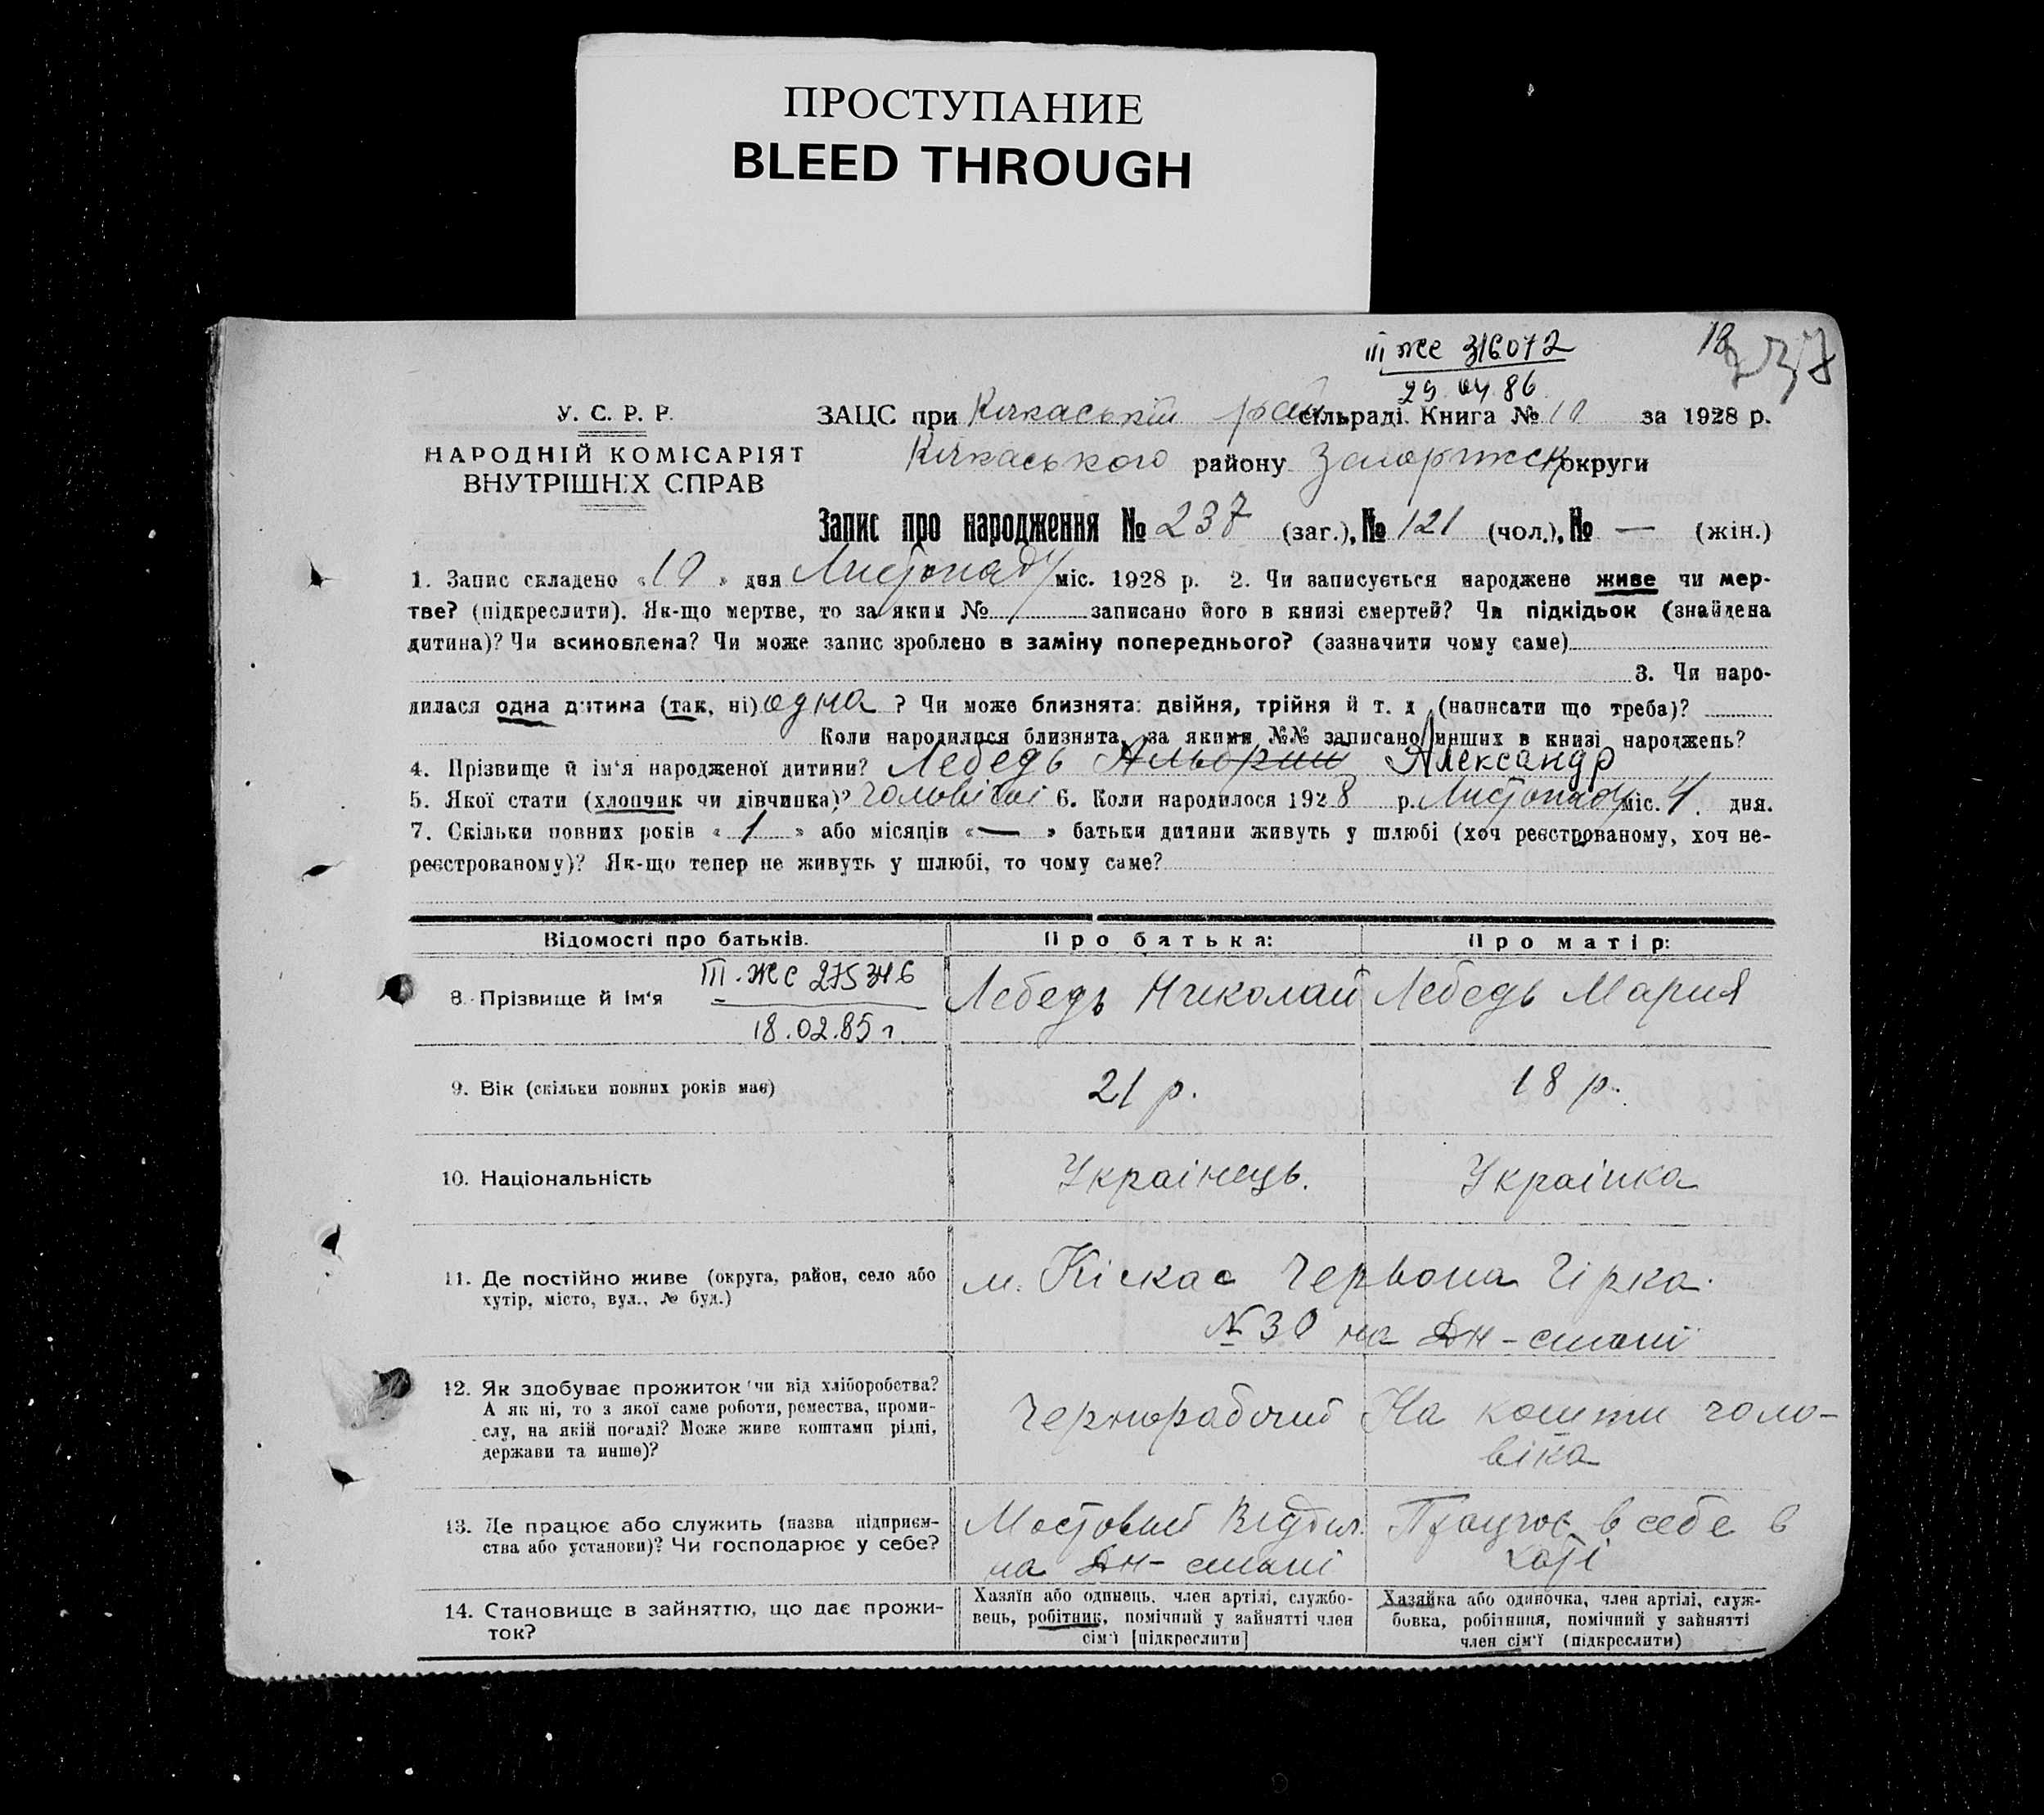 ПРОСТУПАНИЕ
BLEED THROUGH
III ЖС 316072
29.04.86
18
237
У. С. Р. Р.
НАРОДНІЙ КОМІСАРІЯТ
ВНУТРІШНІХ СПРАВ
ЗАЦС при Кічкаській рай сільраді. Книга № 10 за 1928 р.
Кічкаського району Запоріжск округи
Запис про народження № 237 (заг.), № 121 (чол.), № — (жін.)
1. Запис складено «10» дня Листопаду міс. 1928 р. 2. Чи записується народжене живе чи мер-
тве? (підкреслити). Як-що мертве, то за яким № записано його в книзі смертей? Чи підкідьок (знайдена
дитина)? Чи всиновлена? Чи може запис зроблено в заміну попереднього? (зазначити чому саме)
3. Чи наро-
дилася одна дитина (так, ні) одна ? Чи може близнята: двійня, трійня й т. д. (написати що треба)?
Коли народилися близнята, за якими №№ записано инших в книзі народжень?
4. Прізвище й ім'я народженої дитини? Лебедь Альорин Александр
5. Якої стати (хлопчик чи дівчинка)? чоловічої 6. Коли народилося 1928 р. Листопаду міс. 4 дня.
7. Скільки повних років «1» або місяців «—» батьки дитини живуть у шлюбі (хоч реєстрованому, хоч не-
реєстрованому)? Як-що тепер не живуть у шлюбі, то чому саме?
Відомості про батьків. Про батька: Про матір:
III-ЖС 275346
18.02.85 г
8. Прізвище й ім'я Лебедь Николай Лебедь Мария
9. Вік (скільки повних років має) 21 р. 18 р.
10. Національність Українець. Українка
11. Де постійно живе (округа, район, село або
хутір, місто, вул., № буд.)
м. Кічкас Червона Гірка.
№ 30 на Дн-стані
12. Як здобуває прожиток чи від хліборобства?
А як ні, то з якої саме роботи, ремества, проми-
слу, на якій посаді? Може живе коштами рідні,
держави та инше)?
Чернорабочий
На кошти чоло-
віка
13. Де працює або служить (назва підприєм-
ства або установи)? Чи господарює у себе?
Мостовий Відділ.
на Дн-стані
Працює в себе в
хаті
14. Становище в зайняттю, що дає прожи-
ток?
Хазяїн або одинець, член артілі, службо-
вець, робітник, помічний у зайнятті член
сім'ї [підкреслити]
Хазяйка або одиночка, член артілі, служ-
бовка, робітниця, помічний у зайнятті
член сім'ї (підкреслити)